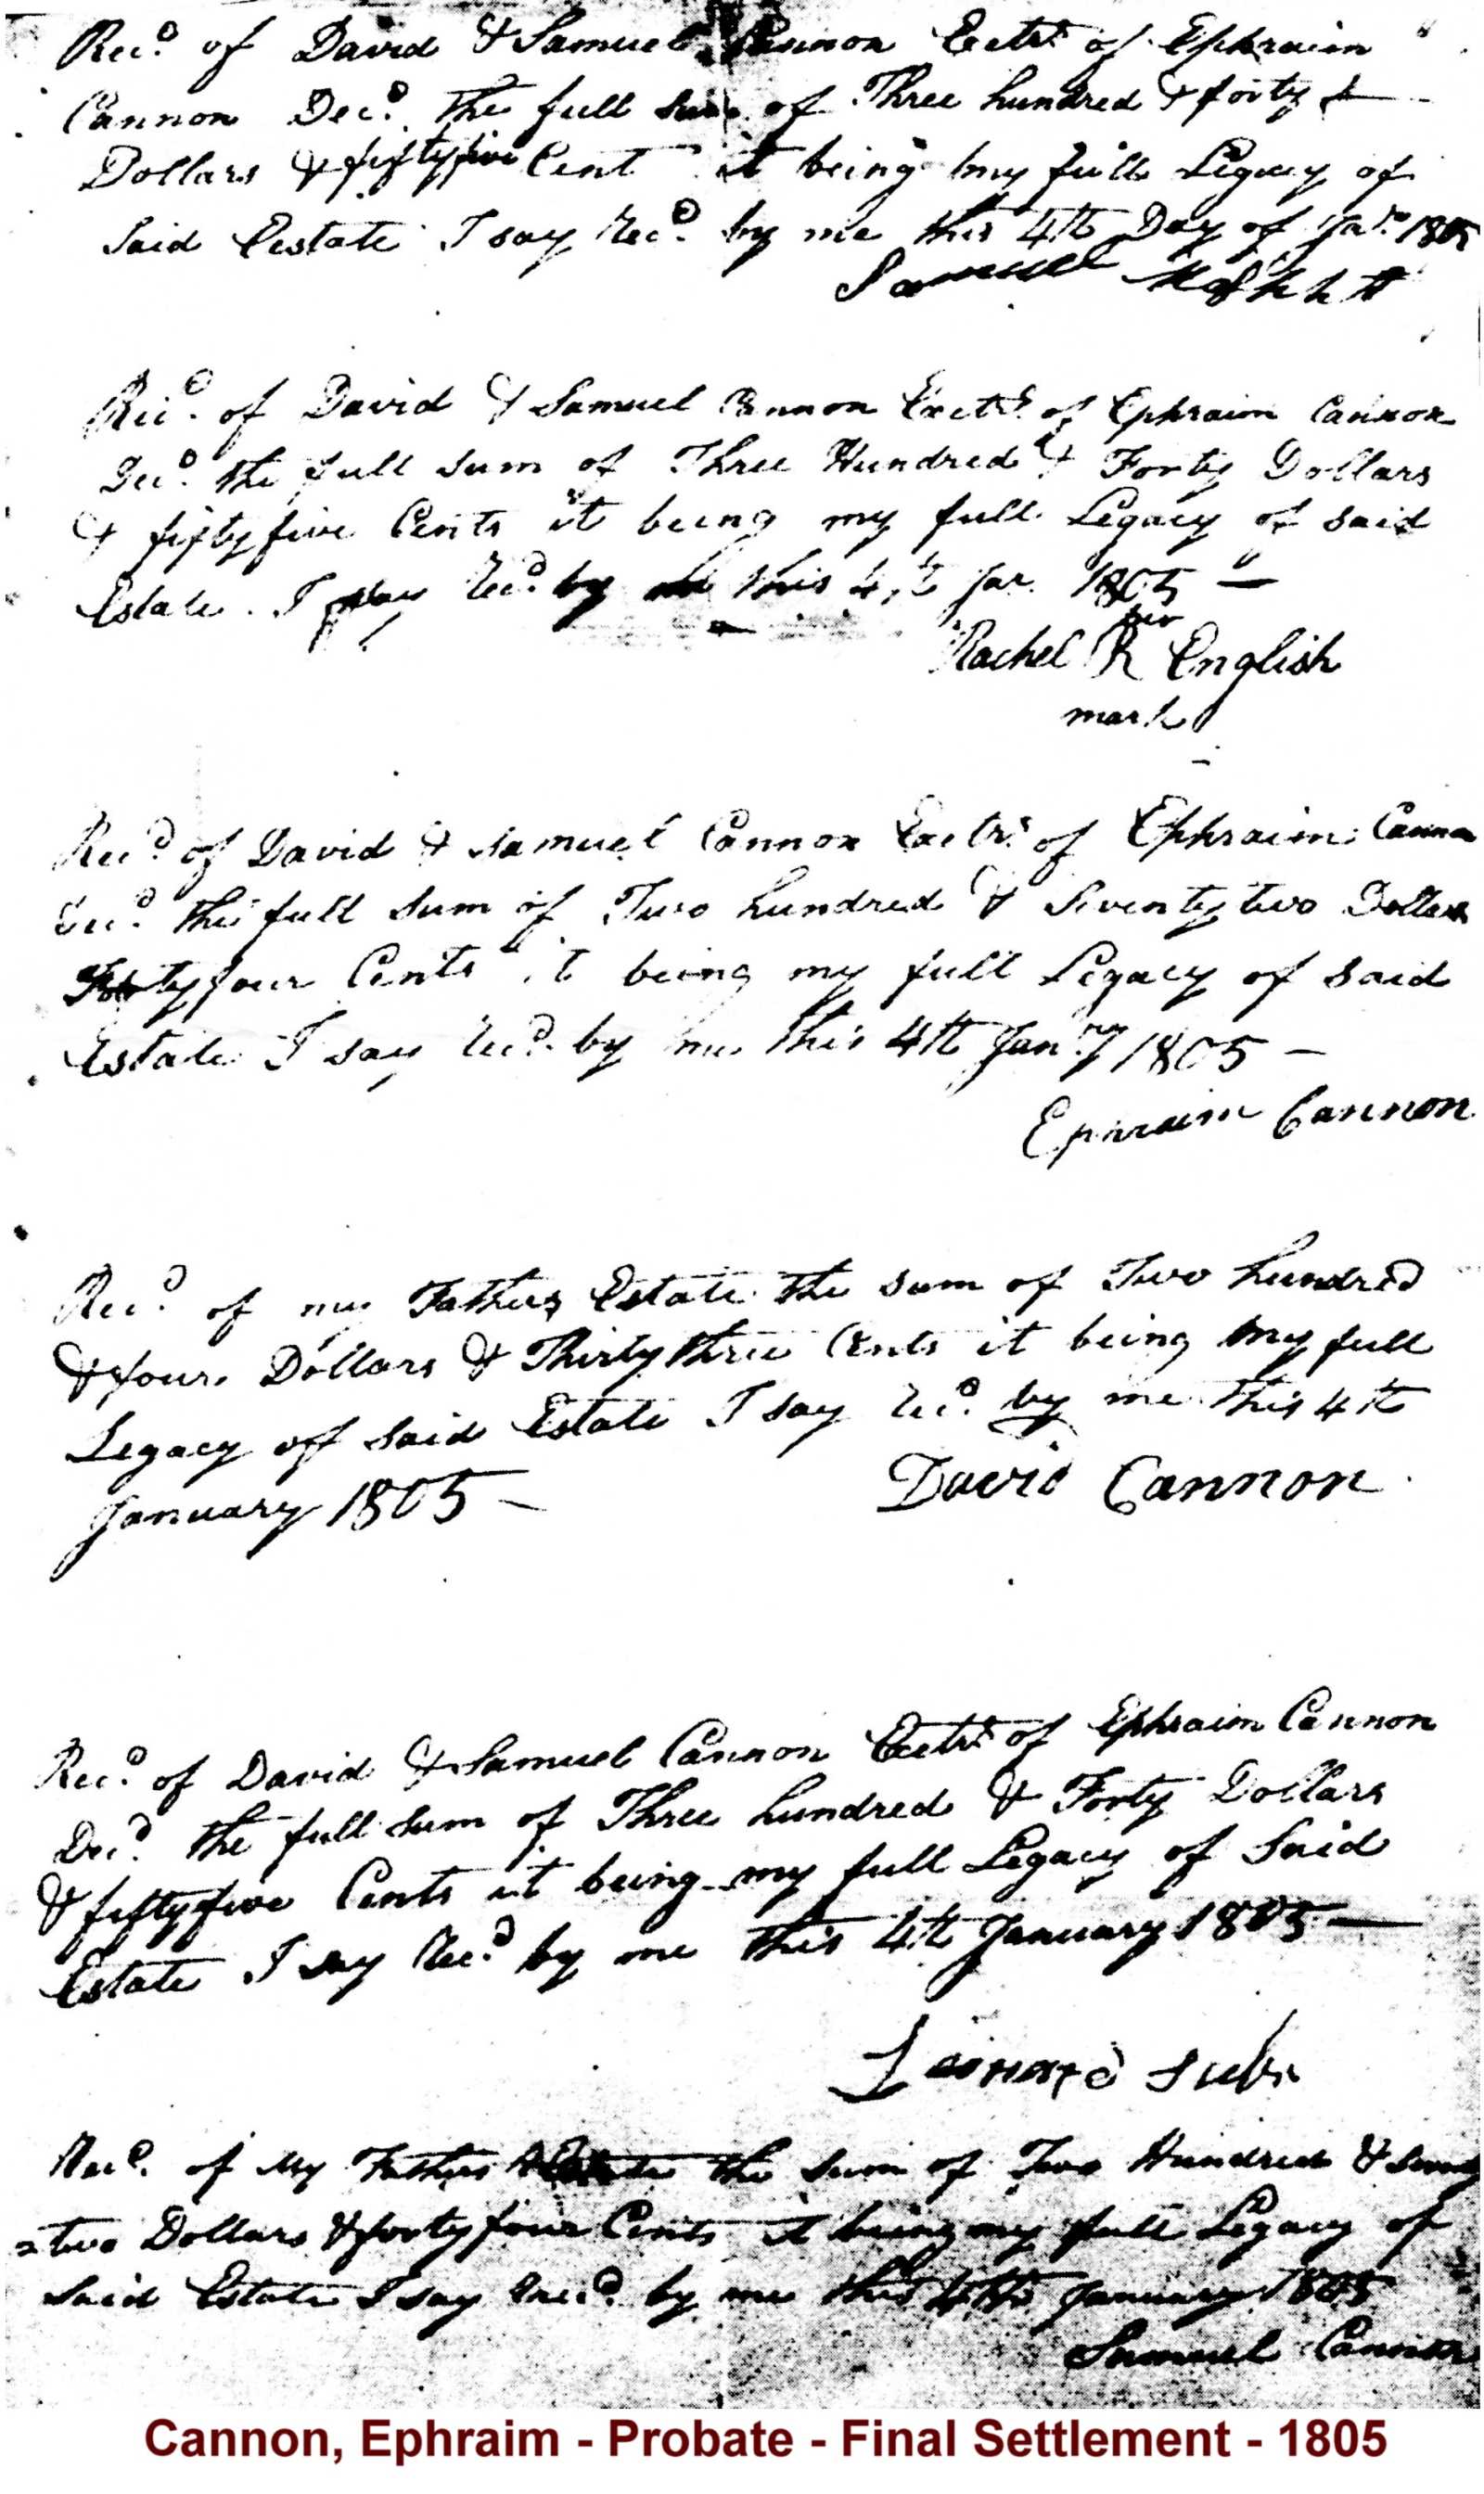 Recd of David & Samuel Cannon Exctrs of Ephraim
Cannon Decd the full sum of Three hundred & forty
Dollars & fiftyfive Cent it being my full Legacy of
Said Eestate I say Recd by me this 4th Day of Jary 1805
Samuel
Recd of David & Samuel Cannon Exctrs of Ephraim Cannon
Decd the full sum of Three Hundred & Forty Dollars
& fiftyfive Cents it being my full Legacy of said
Estate. I say Recd by me this 4th Jar 1805 —
her
Rachel R English
mark
Recd of David & Samuel Cannon Exctrs of Ephraim Cannon
Decd the full sum of Two hundred & Seventy two Dollars
Fortyfour Cents it being my full Legacy of said
Estate I say Recd by me this 4th Janry 1805 —
Ephraim Cannon
Recd of my Fathers Estate the sum of Two hundred
& four Dollars & Thirty three Cents it being my full
Legacy off said Estate I say Recd by me this 4th
January 1805 —
David Cannon
Recd of David & Samuel Cannon Exctrs of Ephraim Cannon
Decd the full sum of Three hundred & Forty Dollars
& fiftyfive Cents it being my full Legacy of Said
Estate I say Recd by me this 4th January 1805 —
Recd of My Fathers Estate the sum of Two Hundred &
=two Dollars & forty four Cents it being my full Legacy of
said Estate I say Recd by me this 4th January 1805
Samuel Cannon
Cannon, Ephraim - Probate - Final Settlement - 1805